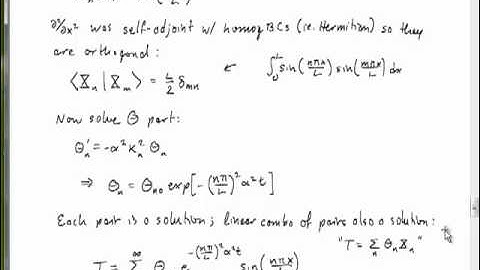 ∂²/∂x² was self-adjoint w/ homog BCs (i.e. Hermitian) so they
are orthogonal:
⟨X_n | X_m⟩ = L/2 δ_mn ← ∫_0^L sin(nπx/L) sin(mπx/L) dx
Now solve Θ part:
Θ_n' = -α² K_n² Θ_n
⇒ Θ_n = Θ_n0 exp[-(nπ/L)² α² t]
Each part is a solution; linear combo of pairs also a solution:
"T = Σ_n Θ_n X_n"
T = Σ^∞ Θ e^{-(nπ/L)² α² t} sin(nπx/L)